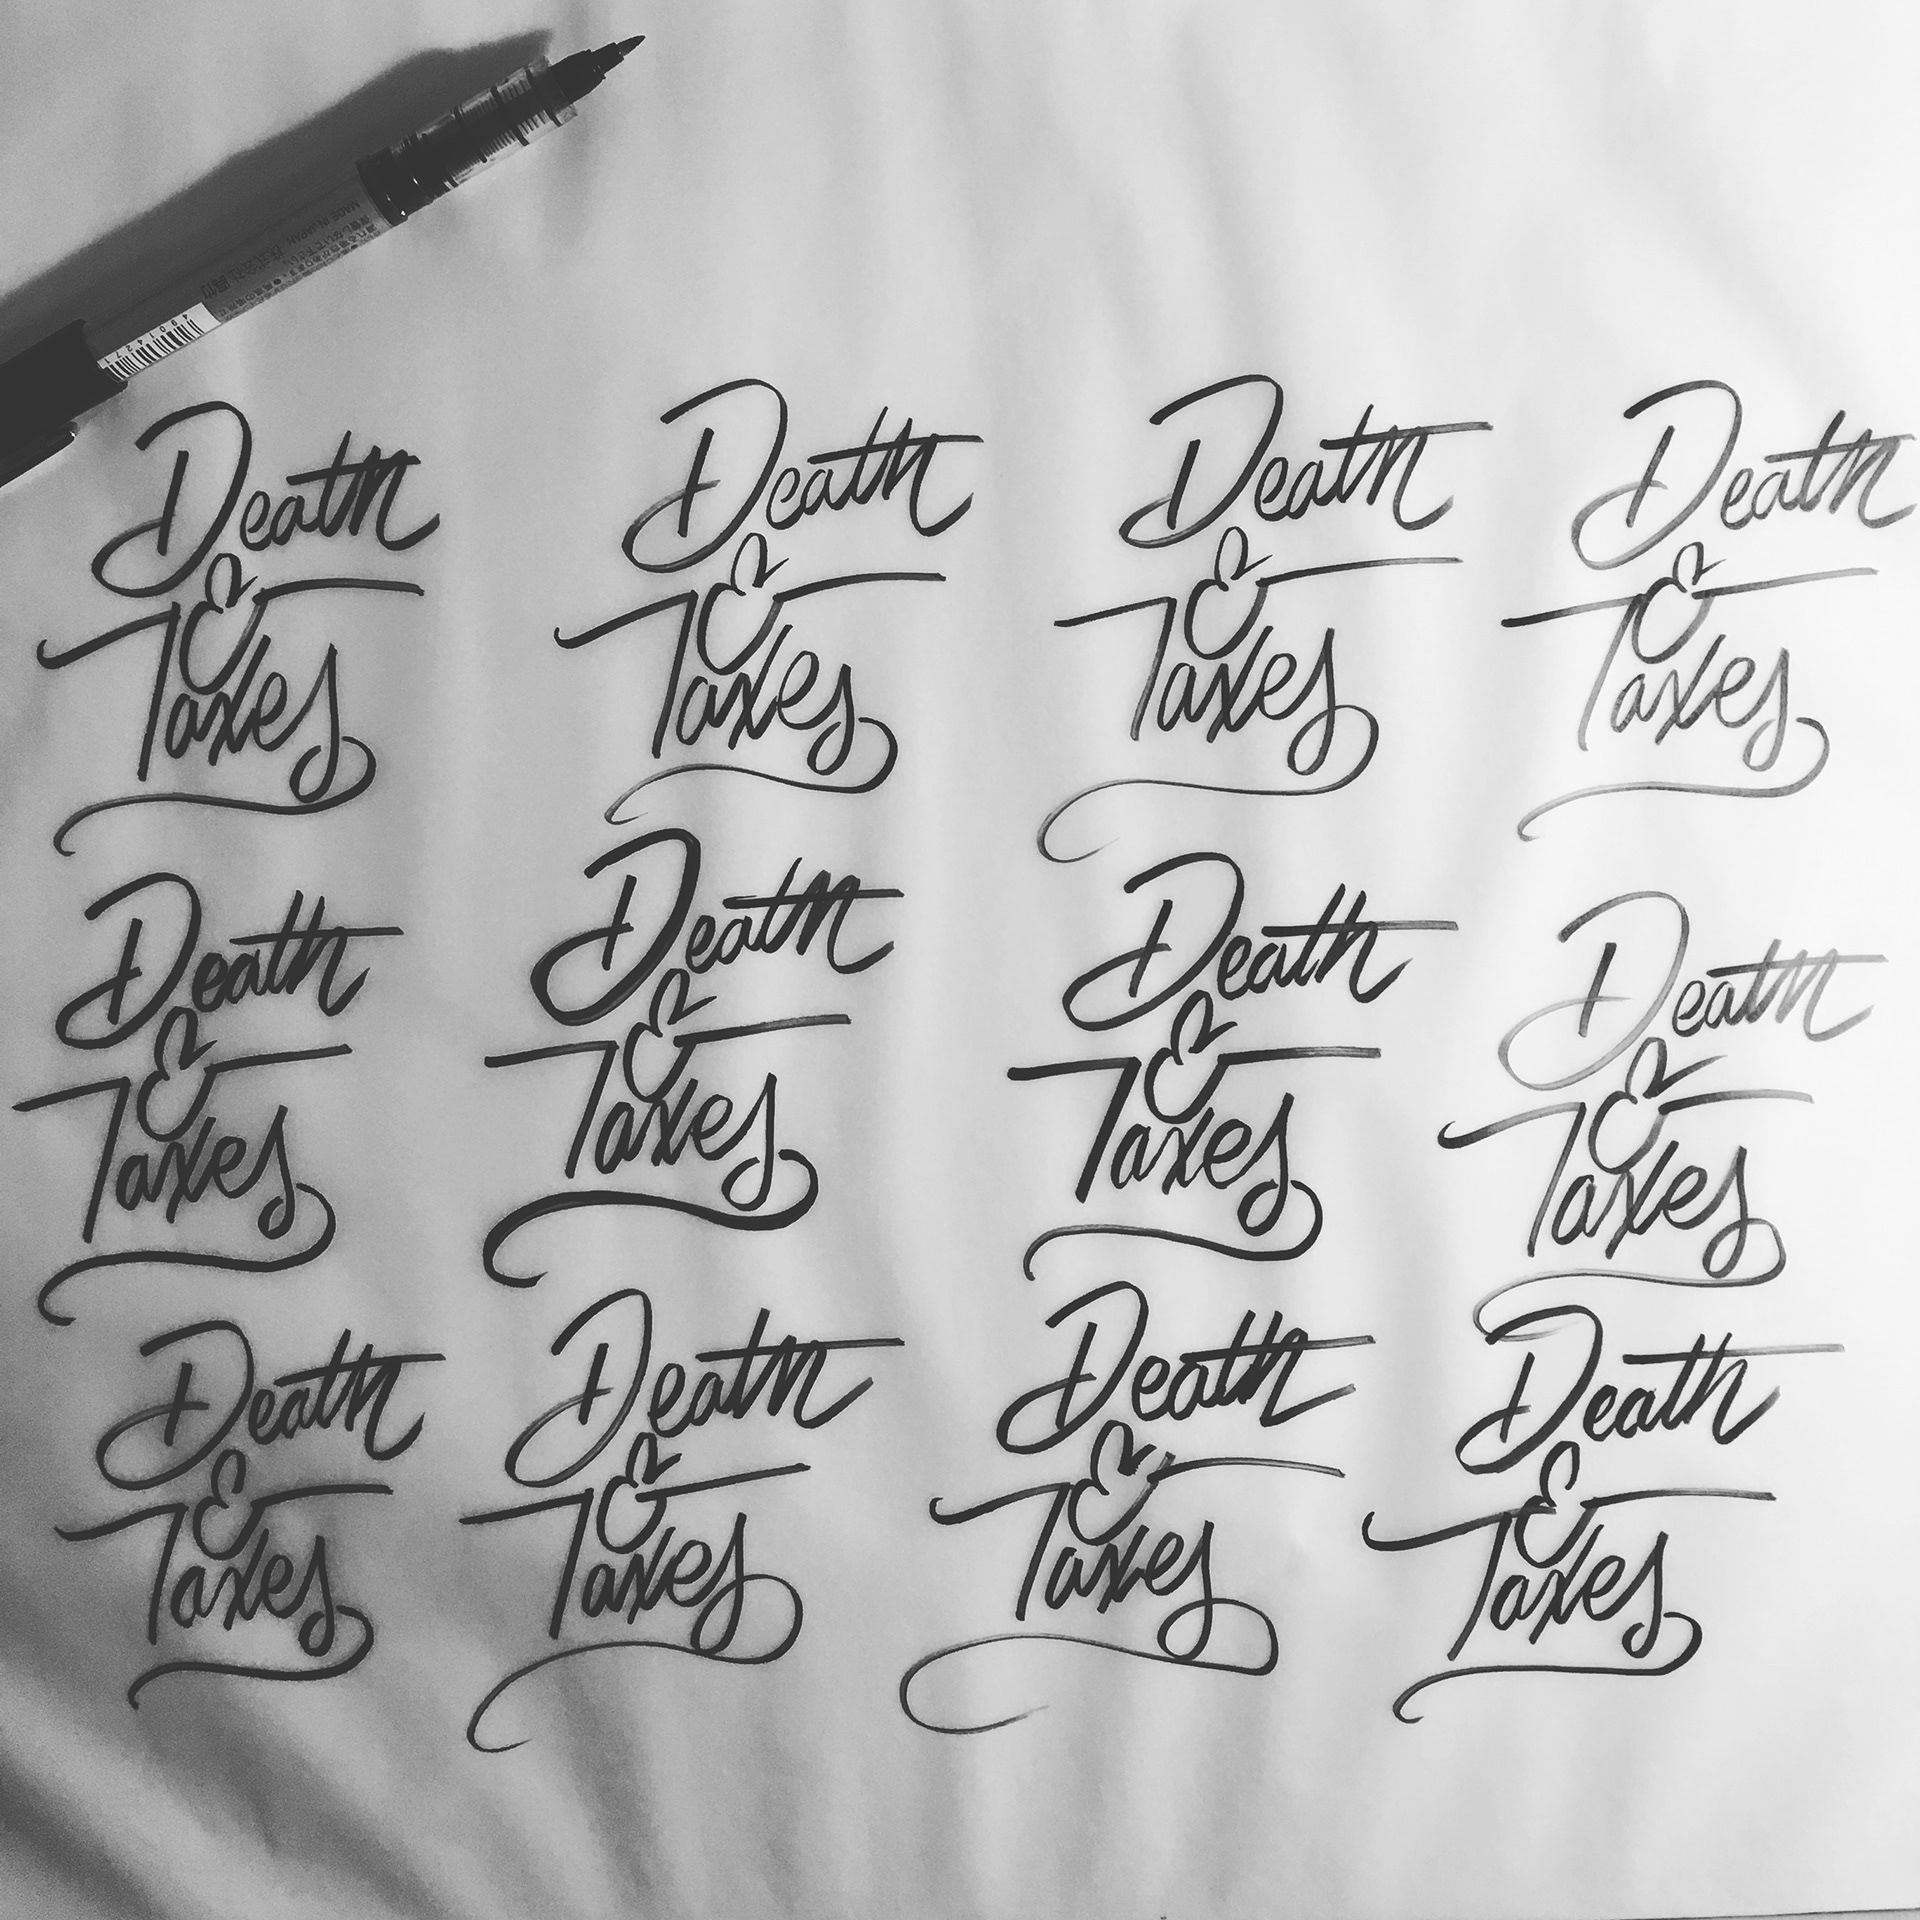 MADE IN JAPAN
4901427
Death Death Death Death
& & & &
Taxes Taxes Taxes Taxes
Death Death Death Death
& & & &
Taxes Taxes Taxes Taxes
Death Death Death Death
& & & &
Taxes Taxes Taxes Taxes